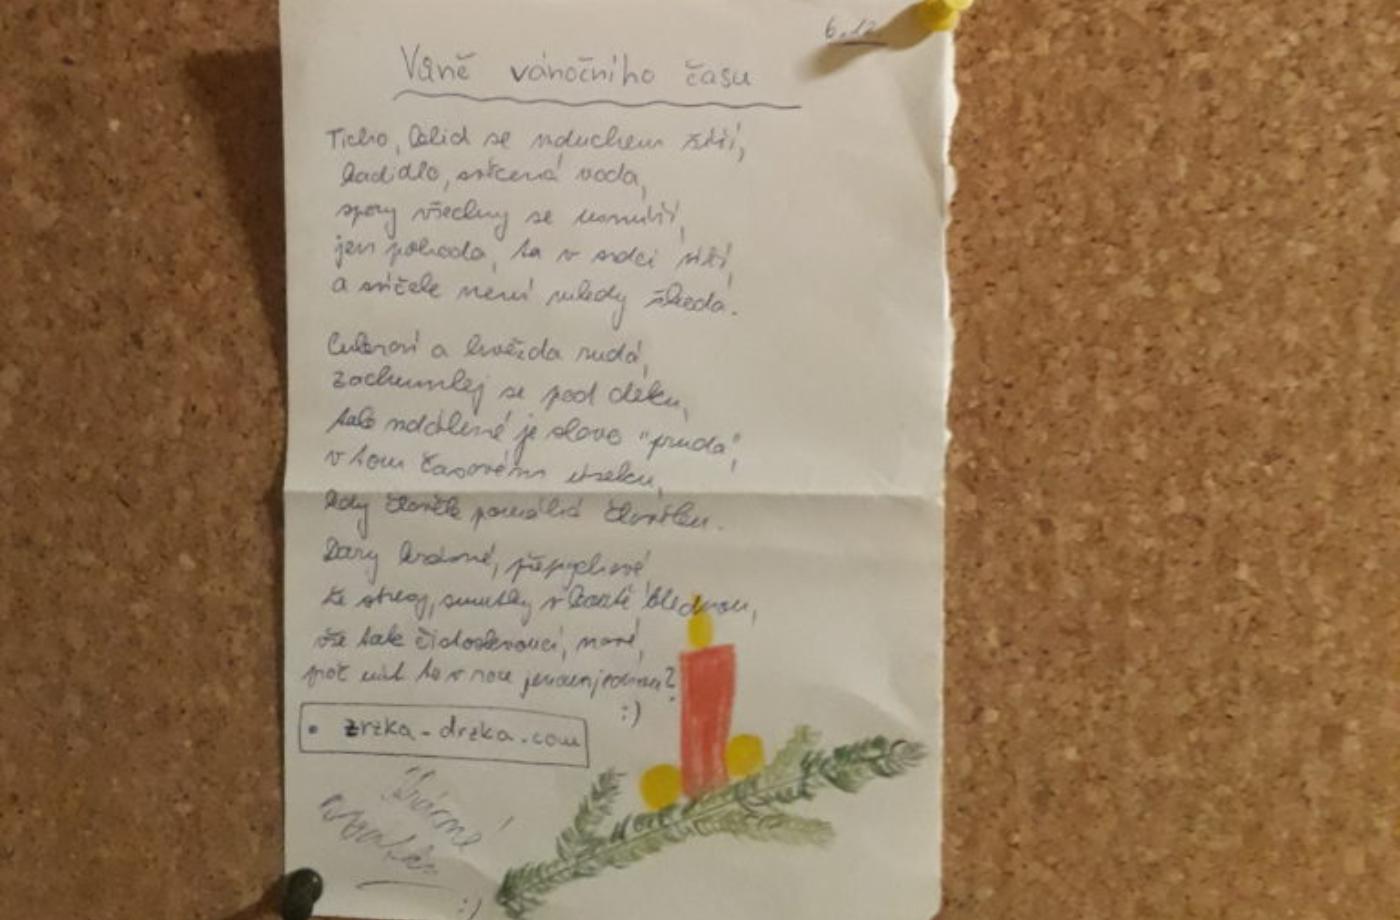 6.12
Vůně vánočního času
Ticho, klid se vzduchem šíří,
kadidlo, svěcená voda,
spory všechny se usmíří,
jen pohoda, ta v srdci víří,
a svíček není nikdy škoda.
Cukroví a hvězda rudá,
zachumlej se pod deku,
tak vzdálené je slovo "pruda",
v tom časovém úseku,
kdy člověk pomáhá člověku.
Dary krásné, přepychové
ke stroj, smutky v koutě blednou,
vše tak čidoskvoucí, nové,
proč mít to v roce jenom jednou?
:)
• zrzka-drzka.com
Krásné
svátky
:)